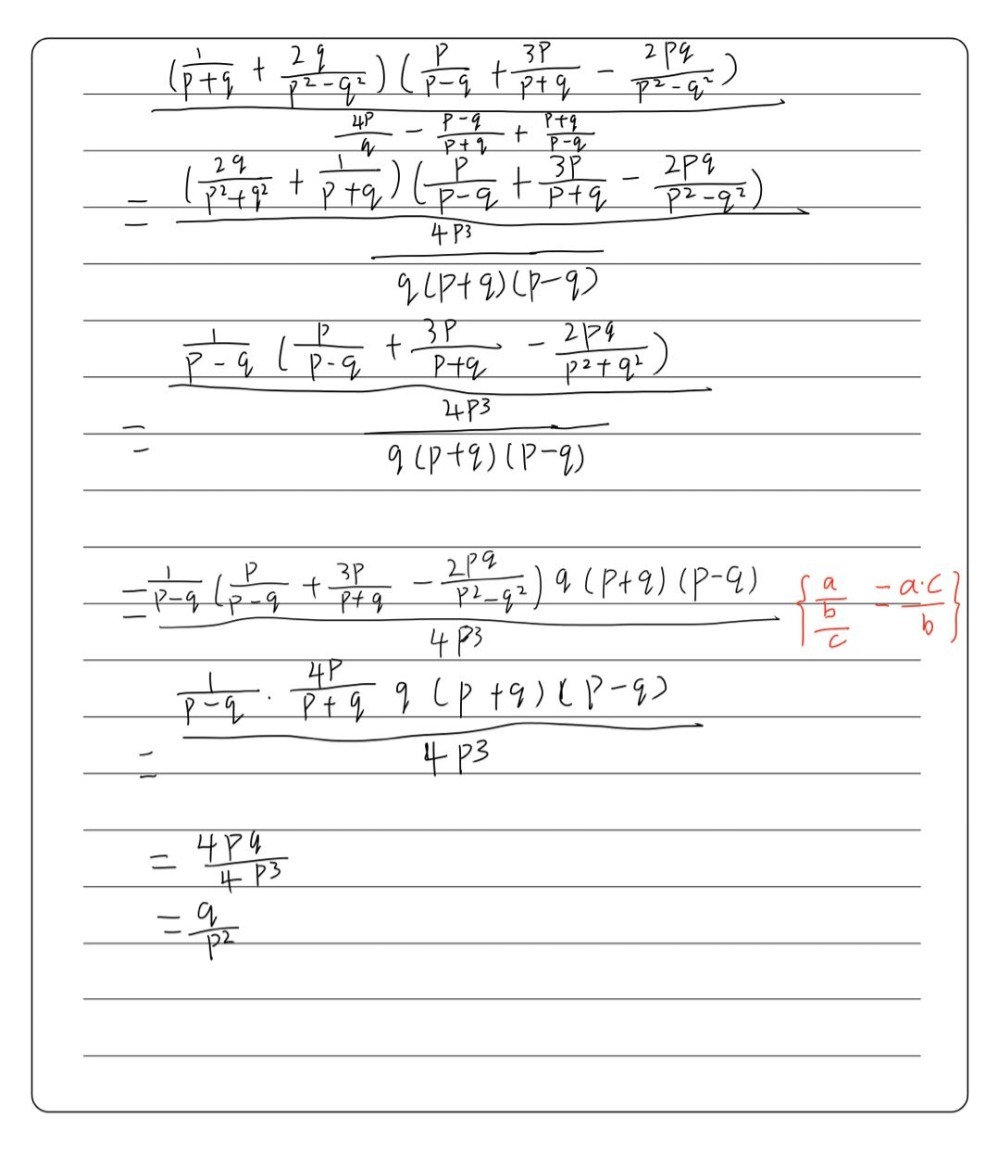 (1/(p+q) + 2q/(p²-q²)) (p/(p-q) + 3p/(p+q) - 2pq/(p²-q²))
4p/q - (p-q)/(p+q) + (p+q)/(p-q)
= (2q/(p²+q²) + 1/(p+q)) (p/(p-q) + 3p/(p+q) - 2pq/(p²-q²))
4p3
q(p+q)(p-q)
1/(p-q) (p/(p-q) + 3p/(p+q) - 2pq/(p²+q²))
=
4p3
q(p+q)(p-q)
= 1/(p-q) (p/(p-q) + 3p/(p+q) - 2pq/(p²-q²)) q(p+q)(p-q) {a/(b/c) = a·c/b}
4p3
1/(p-q) · 4p/(p+q) q(p+q)(p-q)
=
4p3
= 4pq/4p3
= q/p²